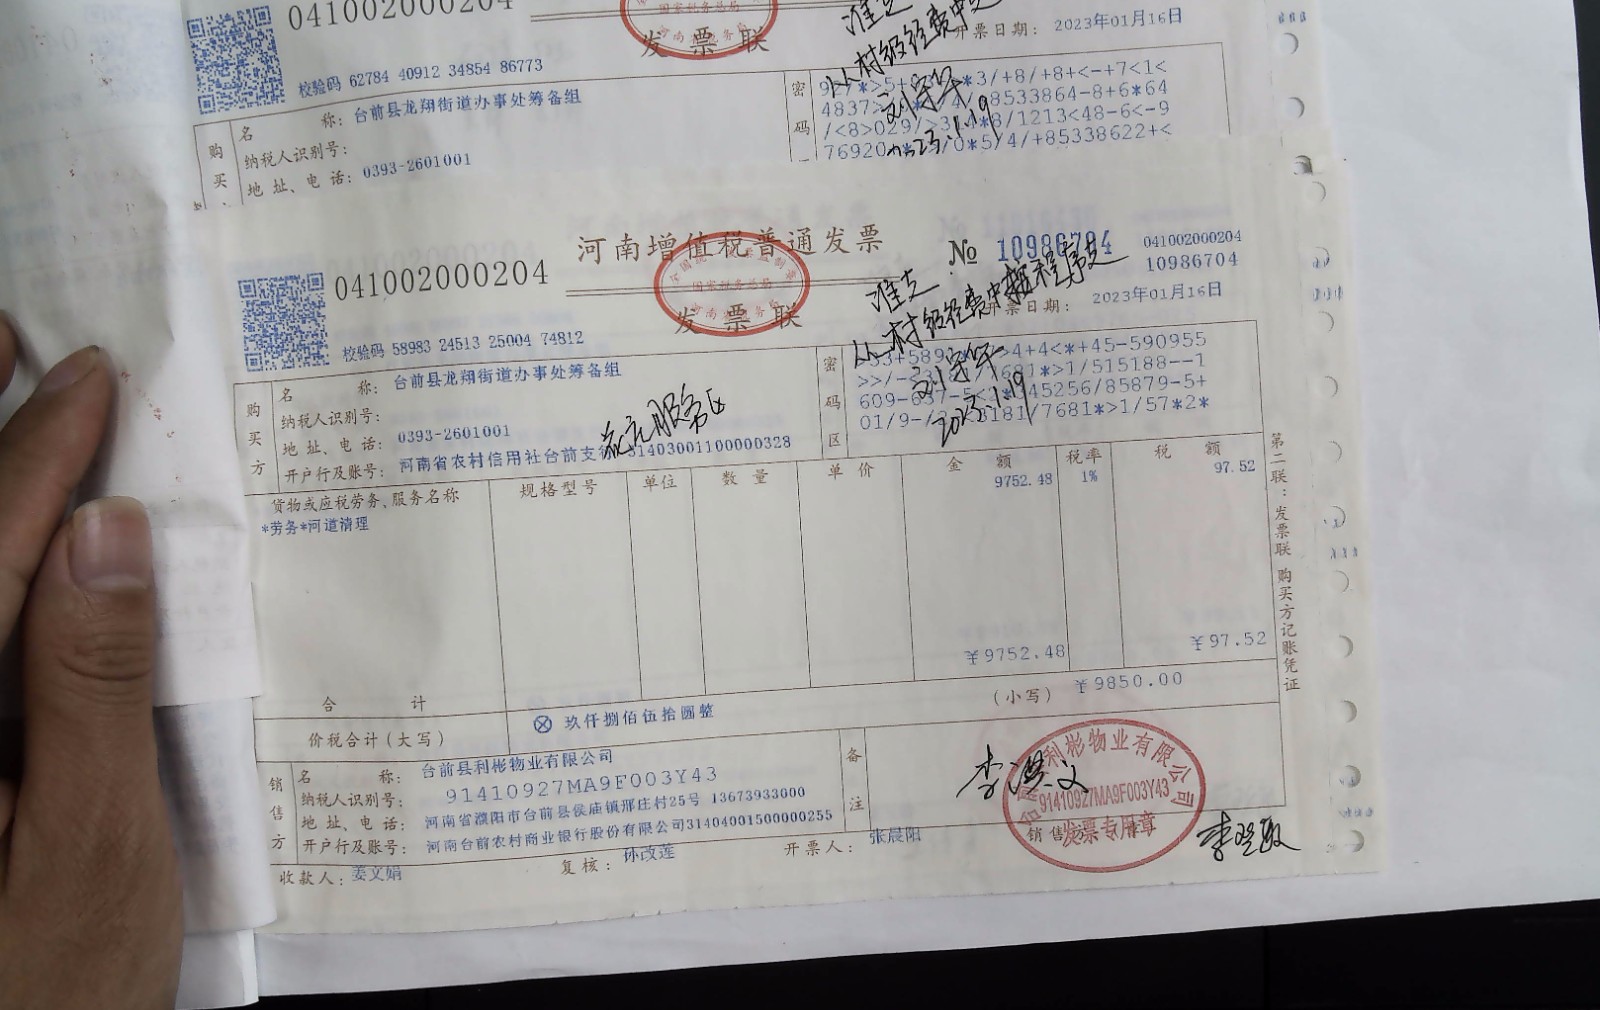 041002000204
发票联
开票日期: 2023年01月16日
校验码 62784 40912 34854 86773
购买
名 称: 台前县龙翔街道办事处筹备组
纳税人识别号:
地址、电话: 0393-2601001
密码
4837>
8533864-8+6*64
/<8>029/>3
*8/1213<48-6<-9
76920
0*5/4/+85338622+<
从村级经费中支
刘守华
2023.1.19
河南增值税普通发票
发票联
041002000204
№ 10986704
041002000204
10986704
开票日期: 2023年01月16日
校验码 58983 24513 25004 74812
准支
从村级经费中按程序支
刘守华
2023.1.19
购买方
名 称: 台前县龙翔街道办事处筹备组
纳税人识别号:
地址、电话: 0393-2601001
开户行及账号: 河南省农村信用社台前支行 31403001100000328
密码区
4+4<*+45-590955
681*>1/515188--1
45256/85879-5+
01/9-
8181/7681*>1/57*2*
货物或应税劳务、服务名称 规格型号 单位 数量 单价 金额 税率 税额
*劳务*河道清理 9752.48 1% 97.52
合计 ¥9752.48 ¥97.52
价税合计(大写) ⊗ 玖仟捌佰伍拾圆整 (小写) ¥9850.00
销售方
名 称: 台前县利彬物业有限公司
纳税人识别号: 91410927MA9F003Y43
地址、电话: 河南省濮阳市台前县侯庙镇邢庄村25号 13673933000
开户行及账号: 河南台前农村商业银行股份有限公司31404001500000255
备注
台前县利彬物业有限公司
91410927MA9F003Y43
发票专用章
收款人: 姜文娟 复核: 孙改莲 开票人: 张晨阳 销售方
第二联:发票联 购买方记账凭证